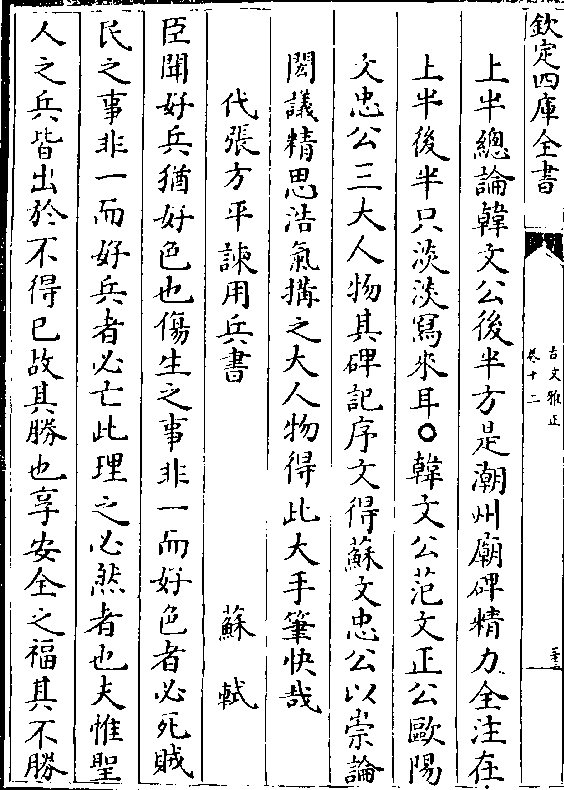 欽定四庫全書
古文雅正
卷十二
上半總論韓文公後半方是潮州廟碑精力全注在
上半後半只淡淡寫來耳〇韓文公范文正公歐陽
文忠公三大人物其碑記序文得蘇文忠公以崇論
閎議精思浩氣搆之大人物得此大手筆快哉
代張方平諫用兵書　蘇軾
臣聞好兵猶好色也傷生之事非一而好色者必死賊
民之事非一而好兵者必亡此理之必然者也夫惟聖
人之兵皆出於不得已故其勝也享安全之福其不勝